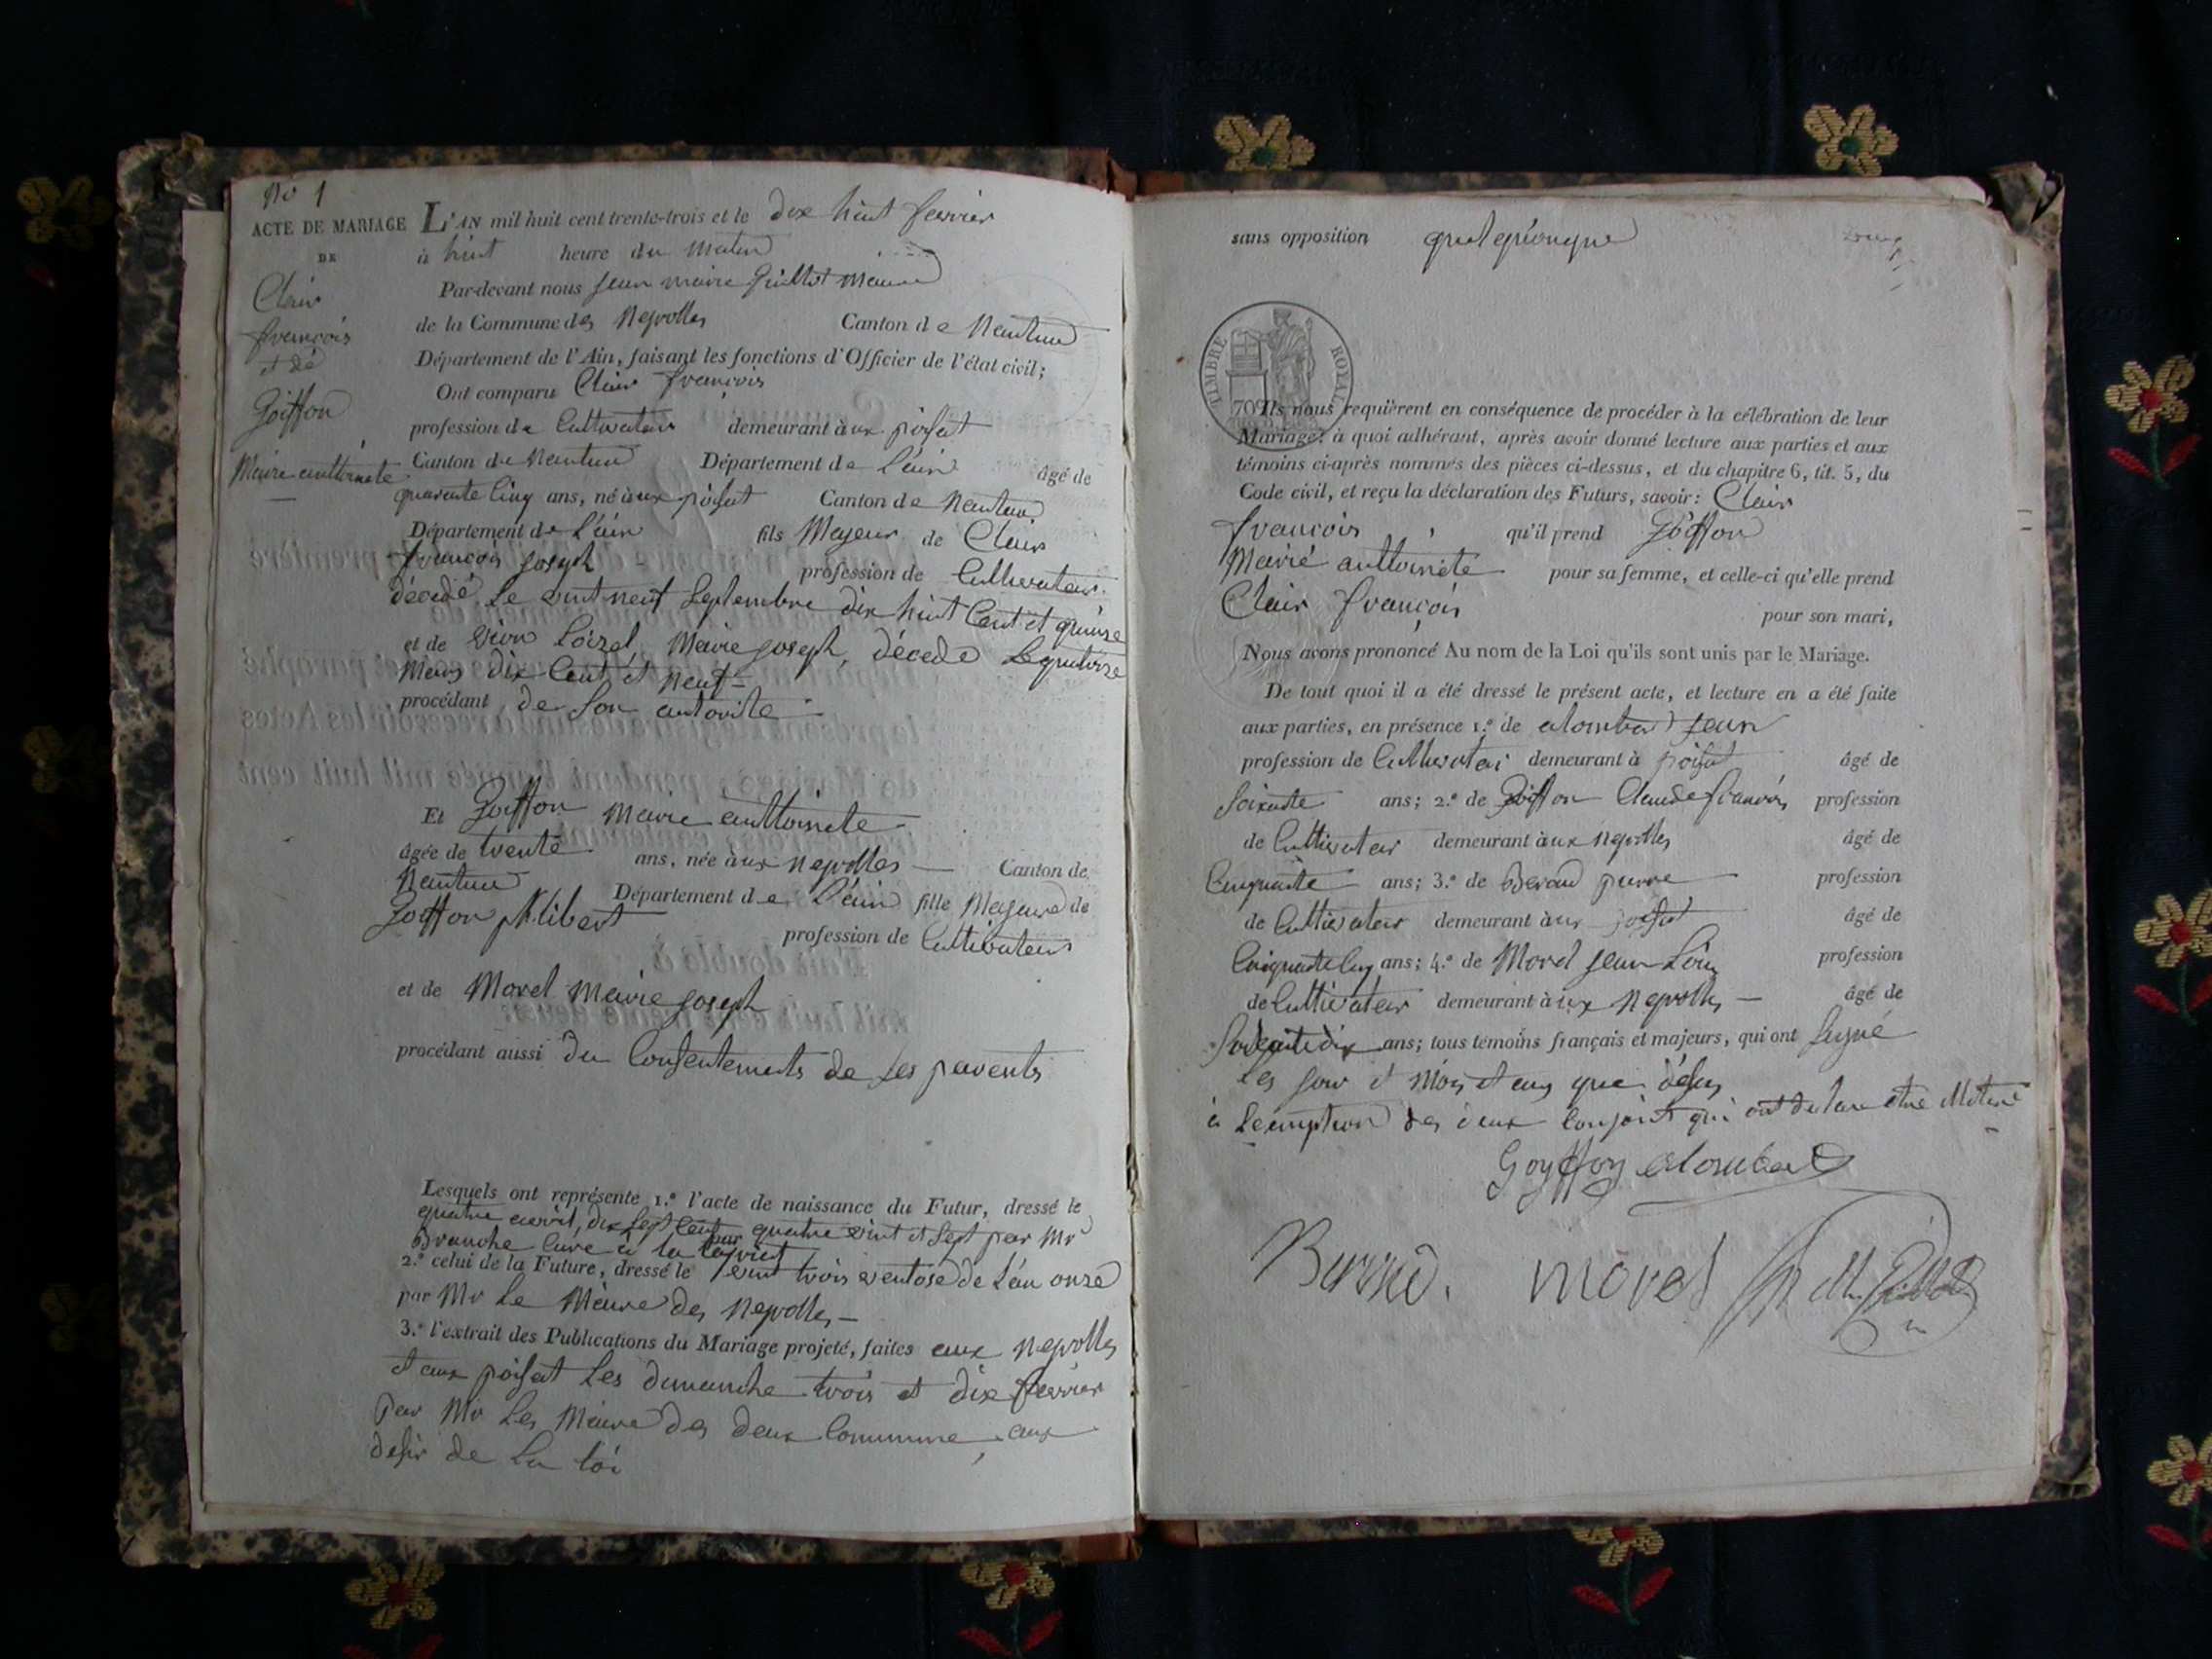 No 1
ACTE DE MARIAGE
DE
Clair
françois
et de
Goiffon
Marie anttoinete
L'AN mil huit cent trente-trois et le dix huit fevrier
à huit heure du matin
Par-devant nous jean marie Guillot maire
de la Commune des Neyrolles Canton de Nantua
Département de l'Ain, faisant les fonctions d'Officier de l'état civil;
Ont comparu Clair françois
profession de Cultivateur demeurant àux poisat
Canton de Nantua Département de L'ain âgé de
quarente Cinq ans, né àux poisat Canton de Nantua
Département de L'ain fils Majeur de Clair
françois joseph profession de Cultivateur
décédé Le vint neuf Septembre dix huit Cent et quinze
et de Loizel, Marie joseph, décédé Le quatorze
Mars dix Cent et neuf
procédant de Son autorite
Et Goiffon marie anttoinete
âgée de trente ans, née àux neyrolles Canton de
Nantua Département de L'ain fille Majeure de
Goiffon philibert profession de Cultivateur
et de Morel marie joseph
procédant aussi du Consentements de Ses parents
Lesquels ont représenté 1.º l'acte de naissance du Futur, dressé le
quatre avril, dix Sept Cent quatre vint et Sept par Mr
Branche Curé à la
2.º celui de la Future, dressé le vint trois ventose de L'an onze
par Mr Le Maire des Neyrolles
3.º l'extrait des Publications du Mariage projeté, faites aux Neyrolles
et aux poisat Les dimanche trois et dix fevrier
par Mr Les Maire des deux Commune, aux
desir de La loi
sans opposition quelquonque
TIMBRE ROYAL
70
Ils nous requièrent en conséquence de procéder à la célébration de leur
Mariage: à quoi adhérant, après avoir donné lecture aux parties et aux
témoins ci-après nommés des pièces ci-dessus, et du chapitre 6, tit. 5, du
Code civil, et reçu la déclaration des Futurs, savoir: Clair
françois qu'il prend Goiffon
Marie anttoinete pour sa femme, et celle-ci qu'elle prend
Clair françois pour son mari,
Nous avons prononcé Au nom de la Loi qu'ils sont unis par le Mariage.
De tout quoi il a été dressé le présent acte, et lecture en a été faite
aux parties, en présence 1.º de alombert jean
profession de Cultivateur demeurant à poisat âgé de
Soixante ans; 2.º de Goiffon Claude françois profession
de Cultivateur demeurant àux neyrolles âgé de
Cinquante ans; 3.º de Beraud pierre profession
de Cultivateur demeurant àux poisat âgé de
Cinquante Cinq ans; 4.º de Morel jean Louis profession
de Cultivateur demeurant àux Neyrolles âgé de
Soixante dix ans; tous témoins français et majeurs, qui ont Signé
Les jour et Mois et an que désus
à Lexception des deux Conjoint qui ont declare etre
Goyffon alombert
Beraud. morel